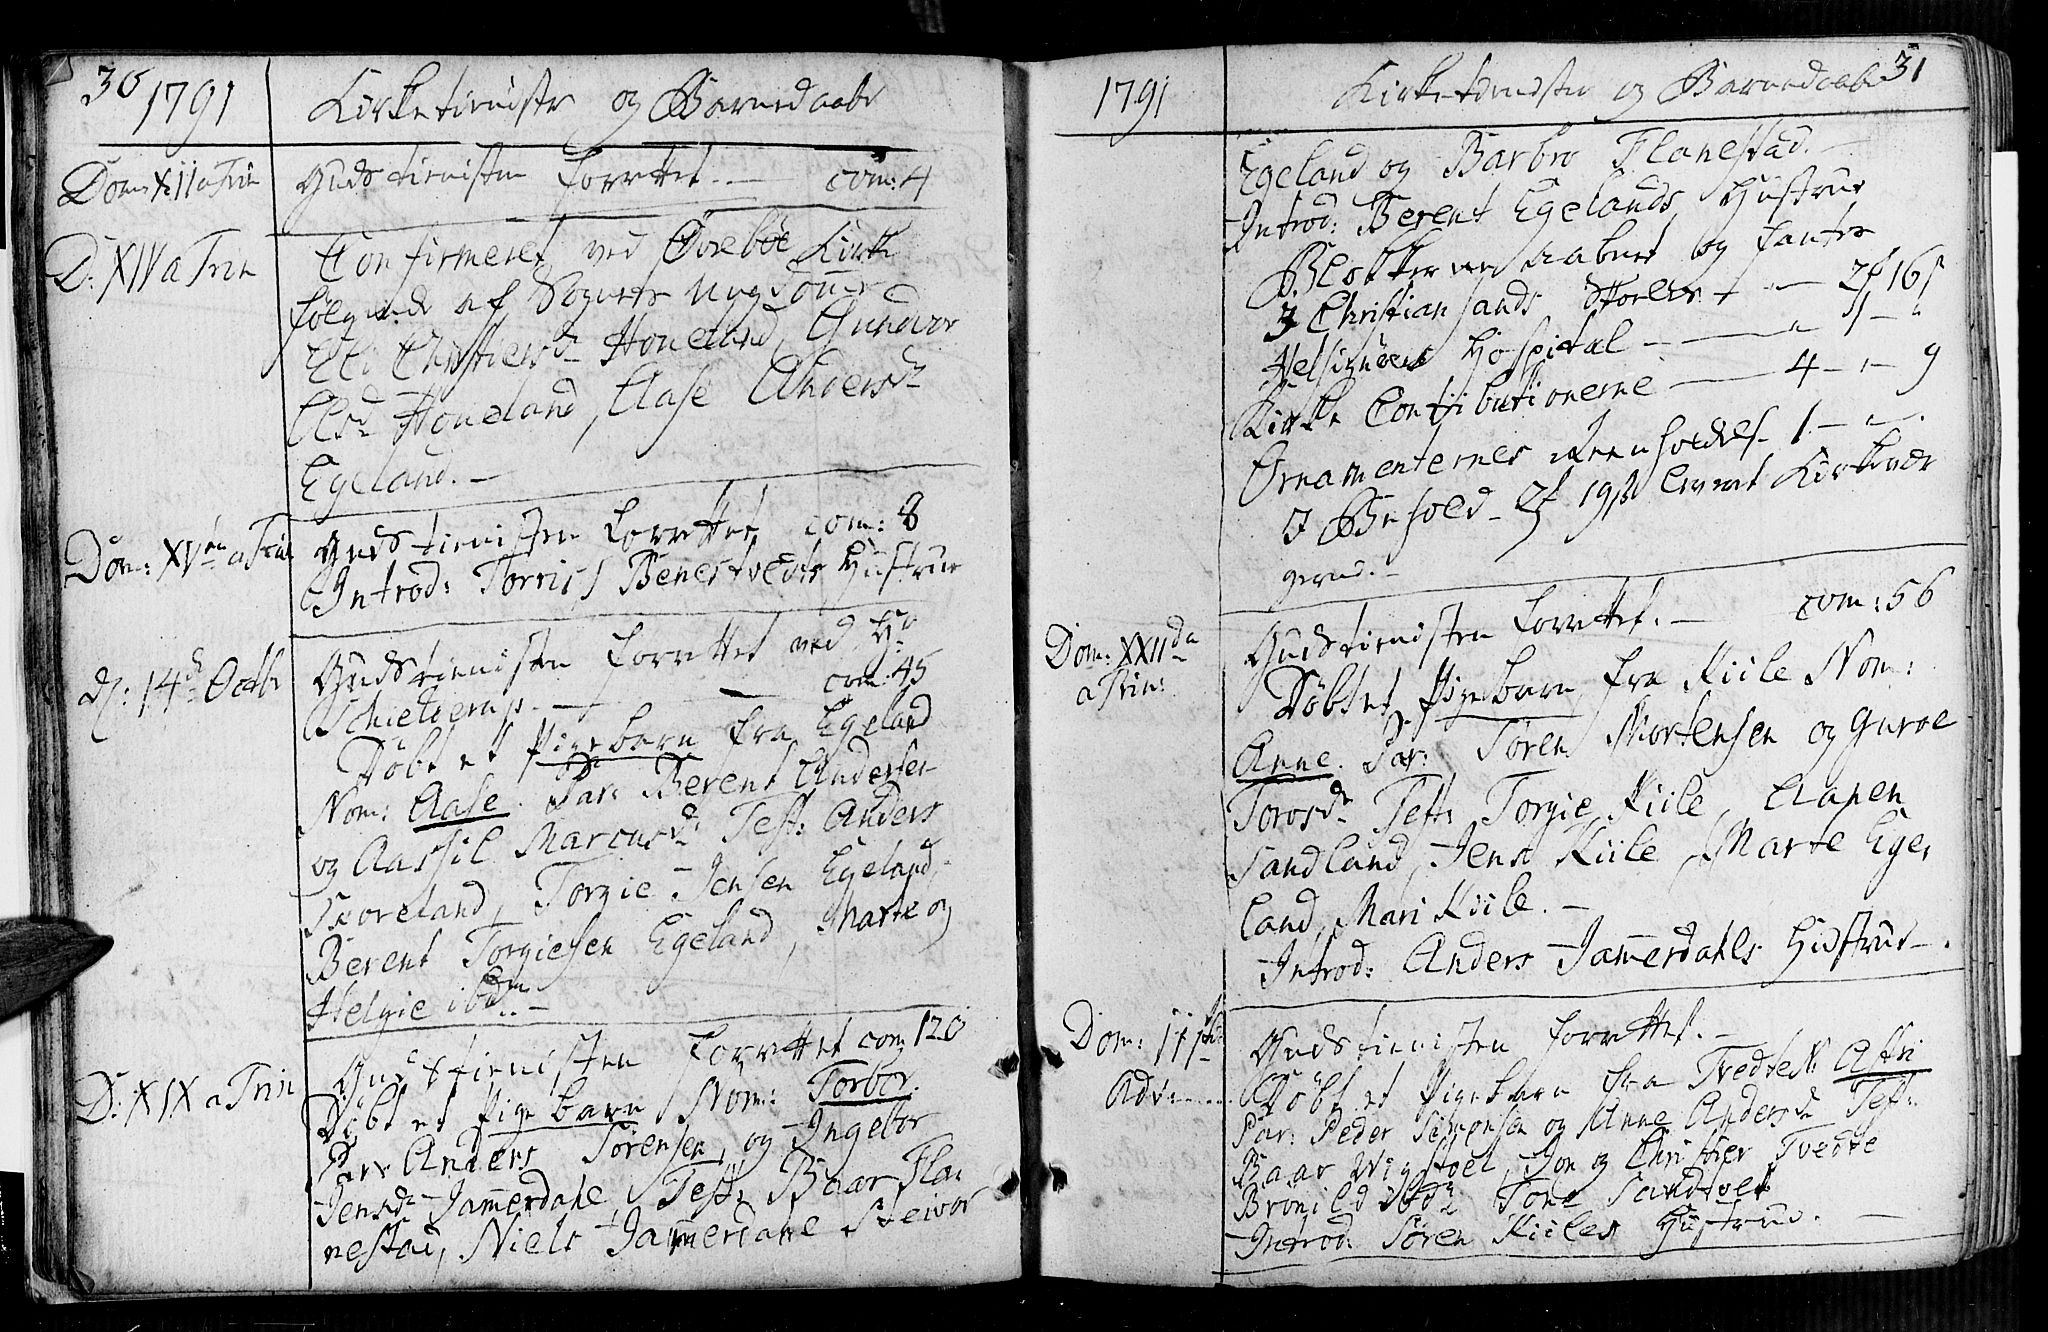 30
1791
Kirketieniste og Barnedaabe
Dom: XIII a Trin
Gudstienisten forrettet. — com: 4
D: XIV a Trin
Confirmeret ved Øvebøe Kirke
følgende af Sognets Ungdom
Eli Christiensd. Honeland, Gundvor
Elsd. Honeland, Aase Andersd.
Egeland. —
Dom: XVen a Trin
Gudstienisten forrettet com: 8
Introd: Torrisß Benestvedts Hustrue
d: 14d. Octbr
Gudstienisten forrettet ved Hr
Schielderup. — com: 45
Døbt et Pigebarn fra Egeland
Nom: Aase. Par: Berent Andersen
og Aassil Marcusd. Test: Anders
Skoreland, Torgie Jensen Egeland,
Berent Torgiesen Egeland, Marte og
Helgie ibdm. —
D: XIX a Trin
Gudstienisten forrettet com 120
Døbt et Pigebarn Nom: Torbor.
Par: Anders Sørensen, og Ingebor
Jensd. Jammerdahle, Test: Baar Fla-
nestad, Niels Jammerdahle Steivor
1791
Kirketieniste og Barnedaabe
31
Egeland og Barbro Flanestad. —
Introd: Berent Egelands Hustrue
Blokken aabnet og fantes
I Christiansands Stoelen — 16
Helsignørs Hospital —
Kirke Contributionerne — 4 — 9
Ornamenternes Reenholdels. 1 —
I Behold 19 leveret Kirkevær
gerne. —
Dom: XXIIda
a Trin:
Gudstienisten forrettet. — com: 56
Døbt et Pigebarn fra Kiile Nom:
Anne. Par: Søren Mortensen og Guroe
Torosd. Test: Torgie Kiile, Aanen
Sandland, Jens Kiile, Marte Ege-
land, Mari Kiile. —
Introd: Anders Jammerdahls Hustrue —.
Dom: III
Adv:
Gudstienisten forrettet. —
Døbt et Pigebarn fra Tvedte N: Astri
Par: Peder Simonsen og Anne Andersd. Test:
Baar Wigstøel, Jon og Christier Tvedte
Bronild ibd. Tone Sandvet
Introd: Søren Kiiles Hustrue. —